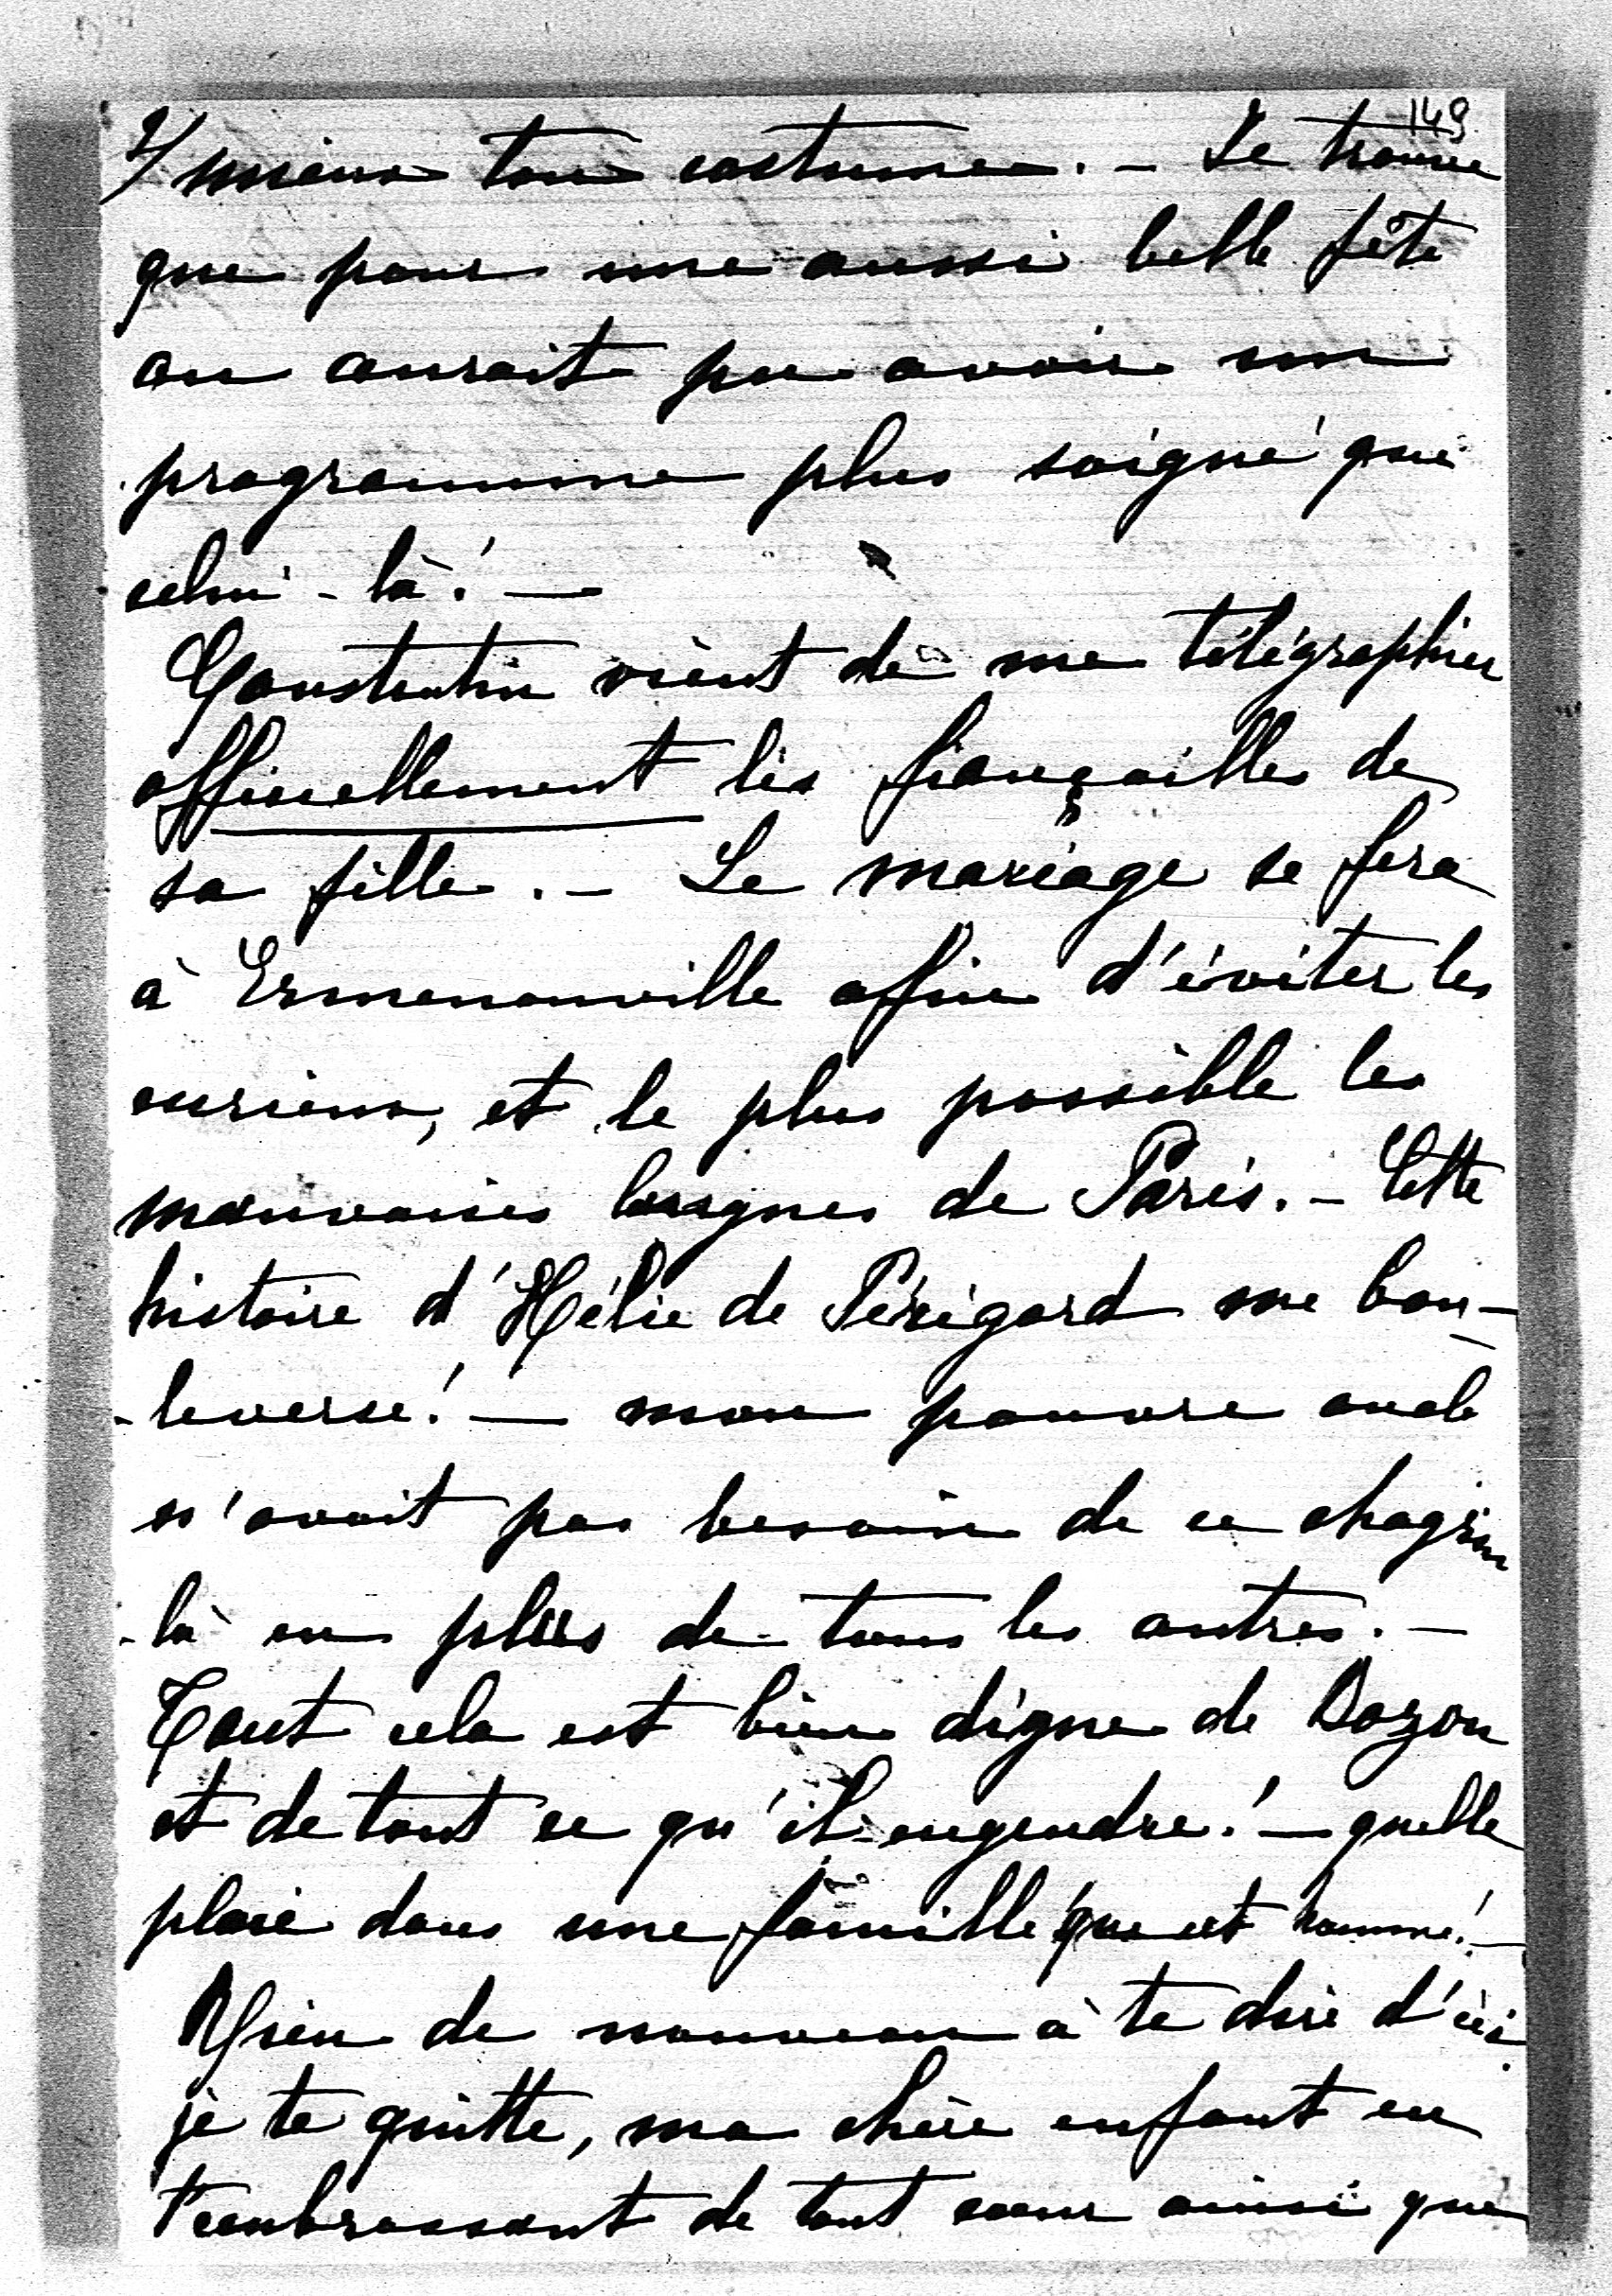 149
2/ mieux ton costume. – Je trouve
que pour une aussi belle fête
on aurait pu avoir un
programme plus soigné que
celui-là! —
Constantin vient de me télégraphier
officiellement les fiançailles de
sa fille. – Le mariage se fera
à Ermenonville afin d'éviter les
curieux, et le plus possible les
mauvaises langues de Paris. – Cette
histoire d'Hélie de Périgord me bou-
-leverse! — mon pauvre oncle
n'avait pas besoin de ce chagrin
-là en plus de tous les autres. –
Tout cela est bien digne de Bozon
et de tout ce qu'il engendre! — quelle
plaie dans une famille que cet homme! –
Rien de nouveau à te dire d'ici.
je te quitte, ma chère enfant en
t'embrassant de tout cœur ainsi que